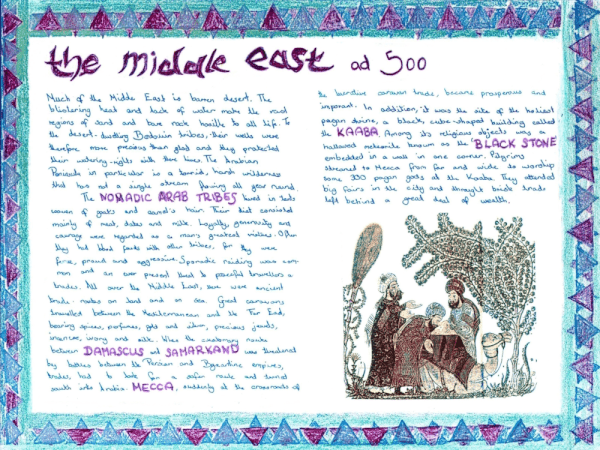 the middle east ad 500
Much of the Middle East is barren desert. The
blistering heat and lack of water make the vast
regions of sand and bare rock hostile to all life. To
the desert-dwelling Bedouin tribes, their wells were
therefore more precious than gold and they protected
their watering-rights with their lives. The Arabian
Peninsula in particular is a torrid, harsh wilderness
that has not a single stream flowing all year round.
The NOMADIC ARAB TRIBES lived in tents
woven of goats and camel's hair. Their diet consisted
mainly of meat, dates and milk. Loyalty, generosity and
courage were regarded as a man's greatest virtues. Often
they had blood feuds with other tribes, for they were
fierce, proud and aggressive. Sporadic raiding was com-
mon and an ever present threat to peaceful travellers &
traders. All over the Middle East, there were ancient
trade-routes on land and on sea. Great caravans
travelled between the Mediterranean and the Far East,
bearing spices, perfumes, gold and silver, precious jewels,
incense, ivory and silk. When the customary route
between DAMASCUS and SAMARKAND was threatened
by battles between the Persian and Byzantine empires,
traders had to look for a safer route and turned
south into Arabia. MECCA, suddenly at the crossroads of
the lucrative caravan trade, became prosperous and
important. In addition, it was the site of the holiest
pagan shrine, a black, cube-shaped building called
the KAABA. Among its religious objects was a
hallowed meteorite known as the BLACK STONE
embedded in a wall in one corner. Pilgrims
streamed to Mecca from far and wide to worship
some 350 pagan gods at the Kaaba. They attended
big fairs in the city and brought brisk trade
left behind a great deal of wealth.